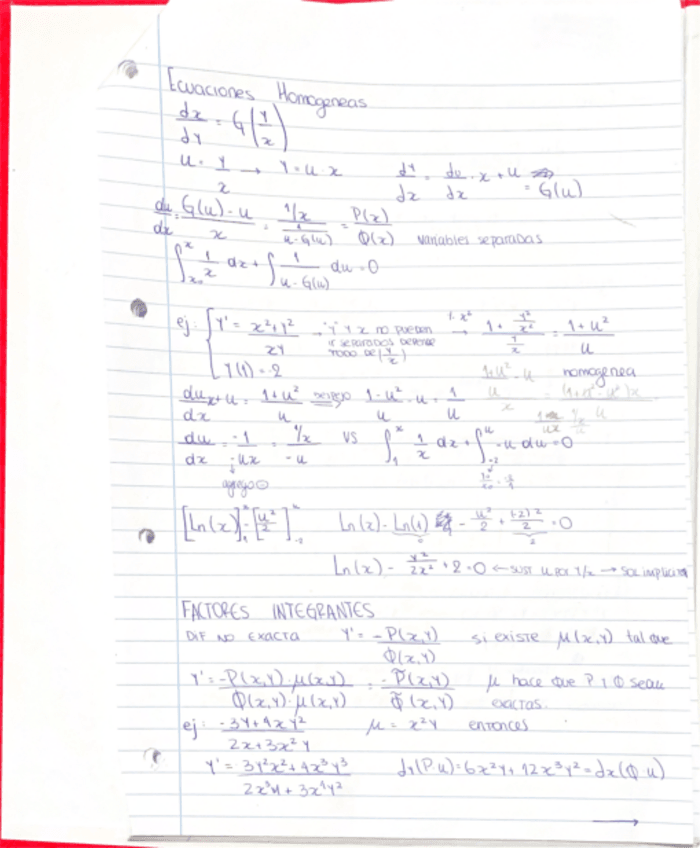 Ecuaciones Homogeneas
dx/dy = G(y/x)
u = y/x → y = u·x dy/dx = du/dx · x + u = G(u)
du/dx = G(u) - u / x = 1/x / 1/u-G(u) = P(x)/Q(x) variables separadas
∫x₀^x 1/x dx + ∫ 1/u-G(u) du = 0
ej: { y' = x²+y² / xy → y y x no pueden ir separados depende todo de (y/x) → 1 + y²/x² / y/x = 1+u² / u
y(1) = -2 homogenea
du/dx x + u = 1+u² / u ⇒ 1-u² / u - u = 1/u
du/dx = -1 / -ux = 1/x / -u vs ∫1^x 1/x dx + ∫-2^u -u du = 0
agrego ⊖
[Ln(x)]1^x - [u²/2]-2^u Ln(x) - Ln(1) - u²/2 + (-2)²/2 = 0
Ln(x) - y²/2x² + 2 = 0 ← sust u por y/x → sol implicita
FACTORES INTEGRANTES
DIF NO EXACTA y' = -P(x,y) / Q(x,y) si existe μ(x,y) tal que
y' = -P(x,y)·μ(x,y) / Q(x,y)·μ(x,y) = -P̃(x,y) / Q̃(x,y) μ hace que P y Q sean exactas.
ej: -3y+4xy² / 2x+3x²y μ = x²y entonces
y' = 3y²x²+4x³y³ / 2x³y+3x⁴y² dy(P u) = 6x²y+12x³y² = dx(Q u)